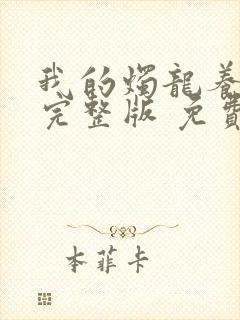 我的燭龍養
完整版 免費
本菲卡